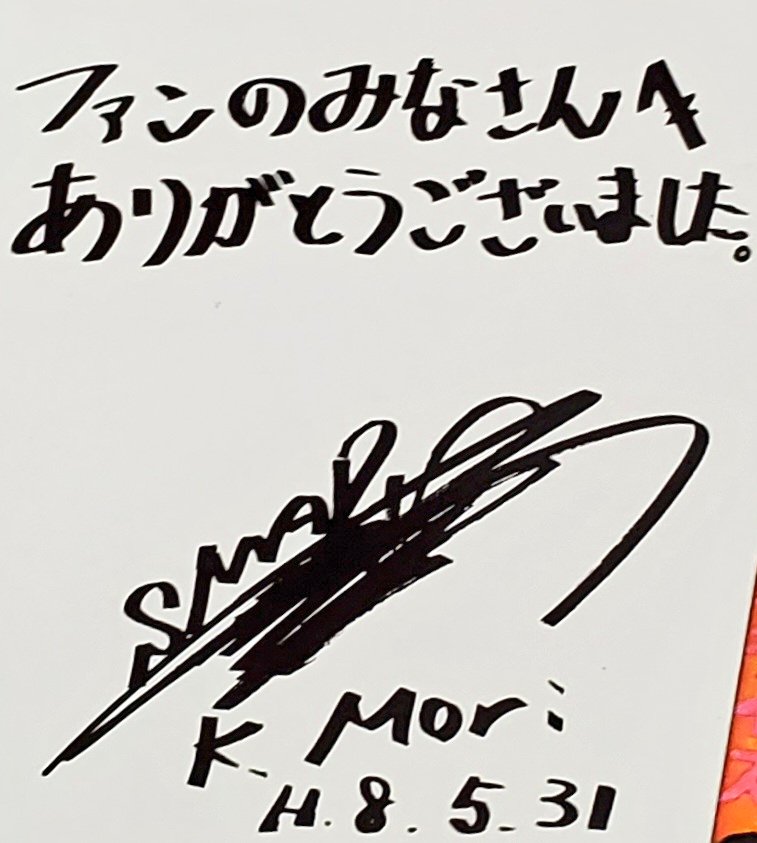 ファンのみなさんへ
ありがとうございました。
SMAP
K. Mori
H. 8. 5. 31